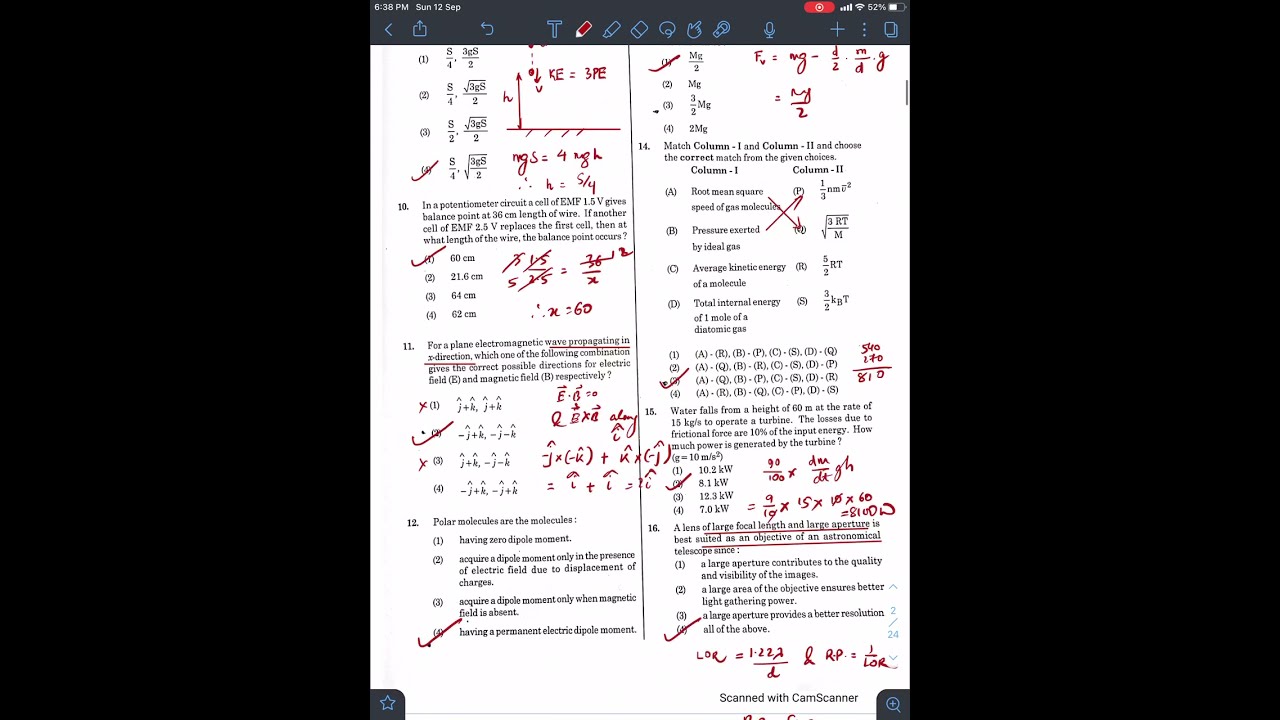 6:38 PM Sun 12 Sep
52%
(1) S/4, 3gS/2
(2) S/4, √3gS/2
(3) S/2, √3gS/2
(4) S/4, √(3gS/2)
KE = 3PE
v
h
mgS = 4 mgh
∴ h = S/4
10. In a potentiometer circuit a cell of EMF 1.5 V gives
balance point at 36 cm length of wire. If another
cell of EMF 2.5 V replaces the first cell, then at
what length of the wire, the balance point occurs ?
(1) 60 cm
(2) 21.6 cm
(3) 64 cm
(4) 62 cm
3 1.5 / 5 2.5 = 36 12 / x
∴ x = 60
11. For a plane electromagnetic wave propagating in
x-direction, which one of the following combination
gives the correct possible directions for electric
field (E) and magnetic field (B) respectively ?
x (1) ĵ+k̂, ĵ+k̂
(2) -ĵ+k̂, -ĵ-k̂
x (3) ĵ+k̂, -ĵ-k̂
(4) -ĵ+k̂, -ĵ+k̂
E⃗·B⃗=0
& E⃗×B⃗ along
î
-ĵ×(-k̂) + k̂×(-ĵ)
= î + î = 2î
12. Polar molecules are the molecules :
(1) having zero dipole moment.
(2) acquire a dipole moment only in the presence
of electric field due to displacement of
charges.
(3) acquire a dipole moment only when magnetic
field is absent.
(4) having a permanent electric dipole moment.
(1) Mg/2
(2) Mg
(3) 3/2 Mg
(4) 2Mg
Fv = mg - d/2 · m/d · g
= Mg/2
14. Match Column - I and Column - II and choose
the correct match from the given choices.
Column - I Column - II
(A) Root mean square (P) 1/3 nmv̄²
speed of gas molecules
(B) Pressure exerted (Q) √(3 RT/M)
by ideal gas
(C) Average kinetic energy (R) 5/2 RT
of a molecule
(D) Total internal energy (S) 3/2 kBT
of 1 mole of a
diatomic gas
(1) (A) - (R), (B) - (P), (C) - (S), (D) - (Q)
(2) (A) - (Q), (B) - (R), (C) - (S), (D) - (P)
(3) (A) - (Q), (B) - (P), (C) - (S), (D) - (R)
(4) (A) - (R), (B) - (Q), (C) - (P), (D) - (S)
540
270
810
15. Water falls from a height of 60 m at the rate of
15 kg/s to operate a turbine. The losses due to
frictional force are 10% of the input energy. How
much power is generated by the turbine ?
(g = 10 m/s²)
(1) 10.2 kW
(2) 8.1 kW
(3) 12.3 kW
(4) 7.0 kW
90/100 × dm/dt gh
= 9/10 × 15 × 10 × 60
=8100W
16. A lens of large focal length and large aperture is
best suited as an objective of an astronomical
telescope since :
(1) a large aperture contributes to the quality
and visibility of the images.
(2) a large area of the objective ensures better
light gathering power.
(3) a large aperture provides a better resolution
(4) all of the above.
LOR = 1.22λ/d & R.P. = 1/LOR
2
/
24
Scanned with CamScanner